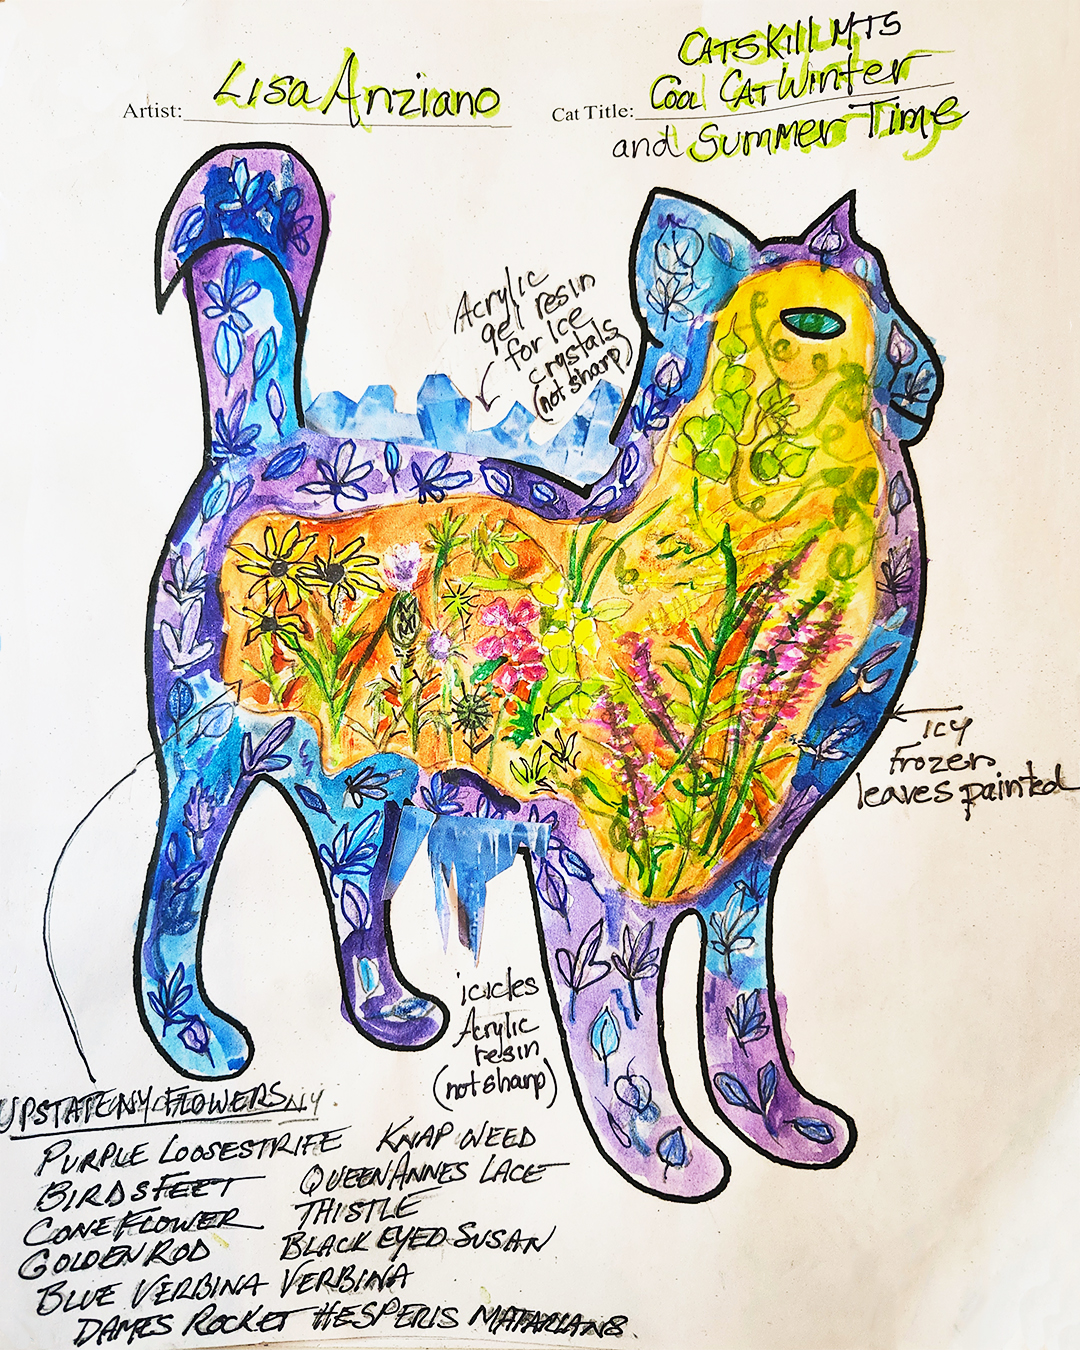 Artist: Lisa Anziano
Cat Title: CATSKill MTS
Cool CAT Winter
and Summer Time
Acrylic
gel resin
for Ice
crystals
(not sharp)
icy
Frozen
leaves painted
icicles
Acrylic
resin
(not sharp)
UPSTATE NY FLOWERS NY.
PURPLE LOOSESTRIFE KNAP WEED
BIRDSFEET QUEEN ANNES LACE
CONEFLOWER THISTLE
GOLDEN ROD BLACK EYED SUSAN
BLUE VERBINA VERBINA
DAMES ROCKET HESPERIS